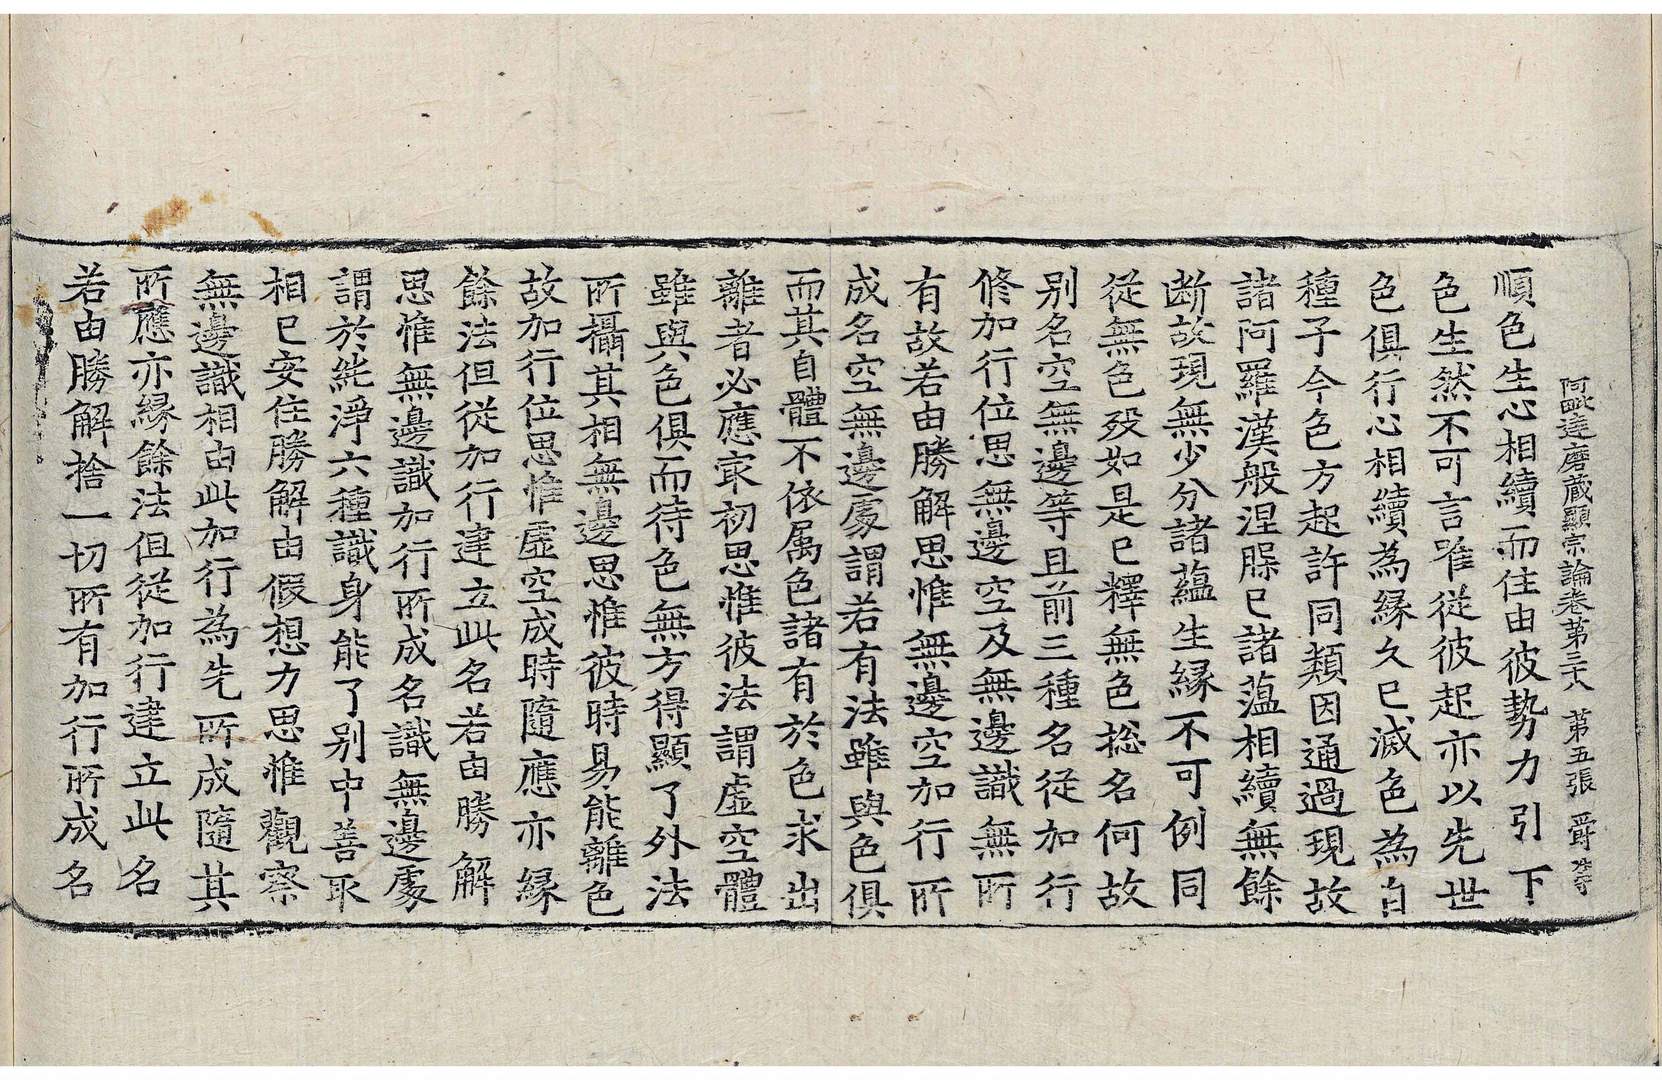 阿毗達磨蔵顯宗論卷第三十八 第五張 爵
順色生心相續而住由彼勢力引下
色生然不可言唯從彼起亦以先世
色俱行心相續為縁久已滅色為自
種子今色方起許同類因通過現故
諸阿羅漢般涅槃已諸薀相續無餘
断故現無少分諸蘊生縁不可例同
從無色歿如是已釋無色揔名何故
別名空無邊等且前三種名從加行
修加行位思無邊空及無邊識無所
有故若由勝解思惟無邊空加行所
成名空無邊處謂若有法雖與色俱
而其自體不依属色諸有於色求出
離者必應㝡初思惟彼法謂虛空體
雖與色俱而待色無方得顯了外法
所攝其相無邊思惟彼時易能離色
故加行位思惟虛空成時隨應亦緣
餘法但從加行建立此名若由勝解
思惟無邊識加行所成名識無邊處
謂於純淨六種識身能了別中善取
相已安住勝解由假想力思惟觀察
無邊識相由此加行為先所成隨其
所應亦緣餘法但從加行建立此名
若由勝解捨一切所有加行所成名